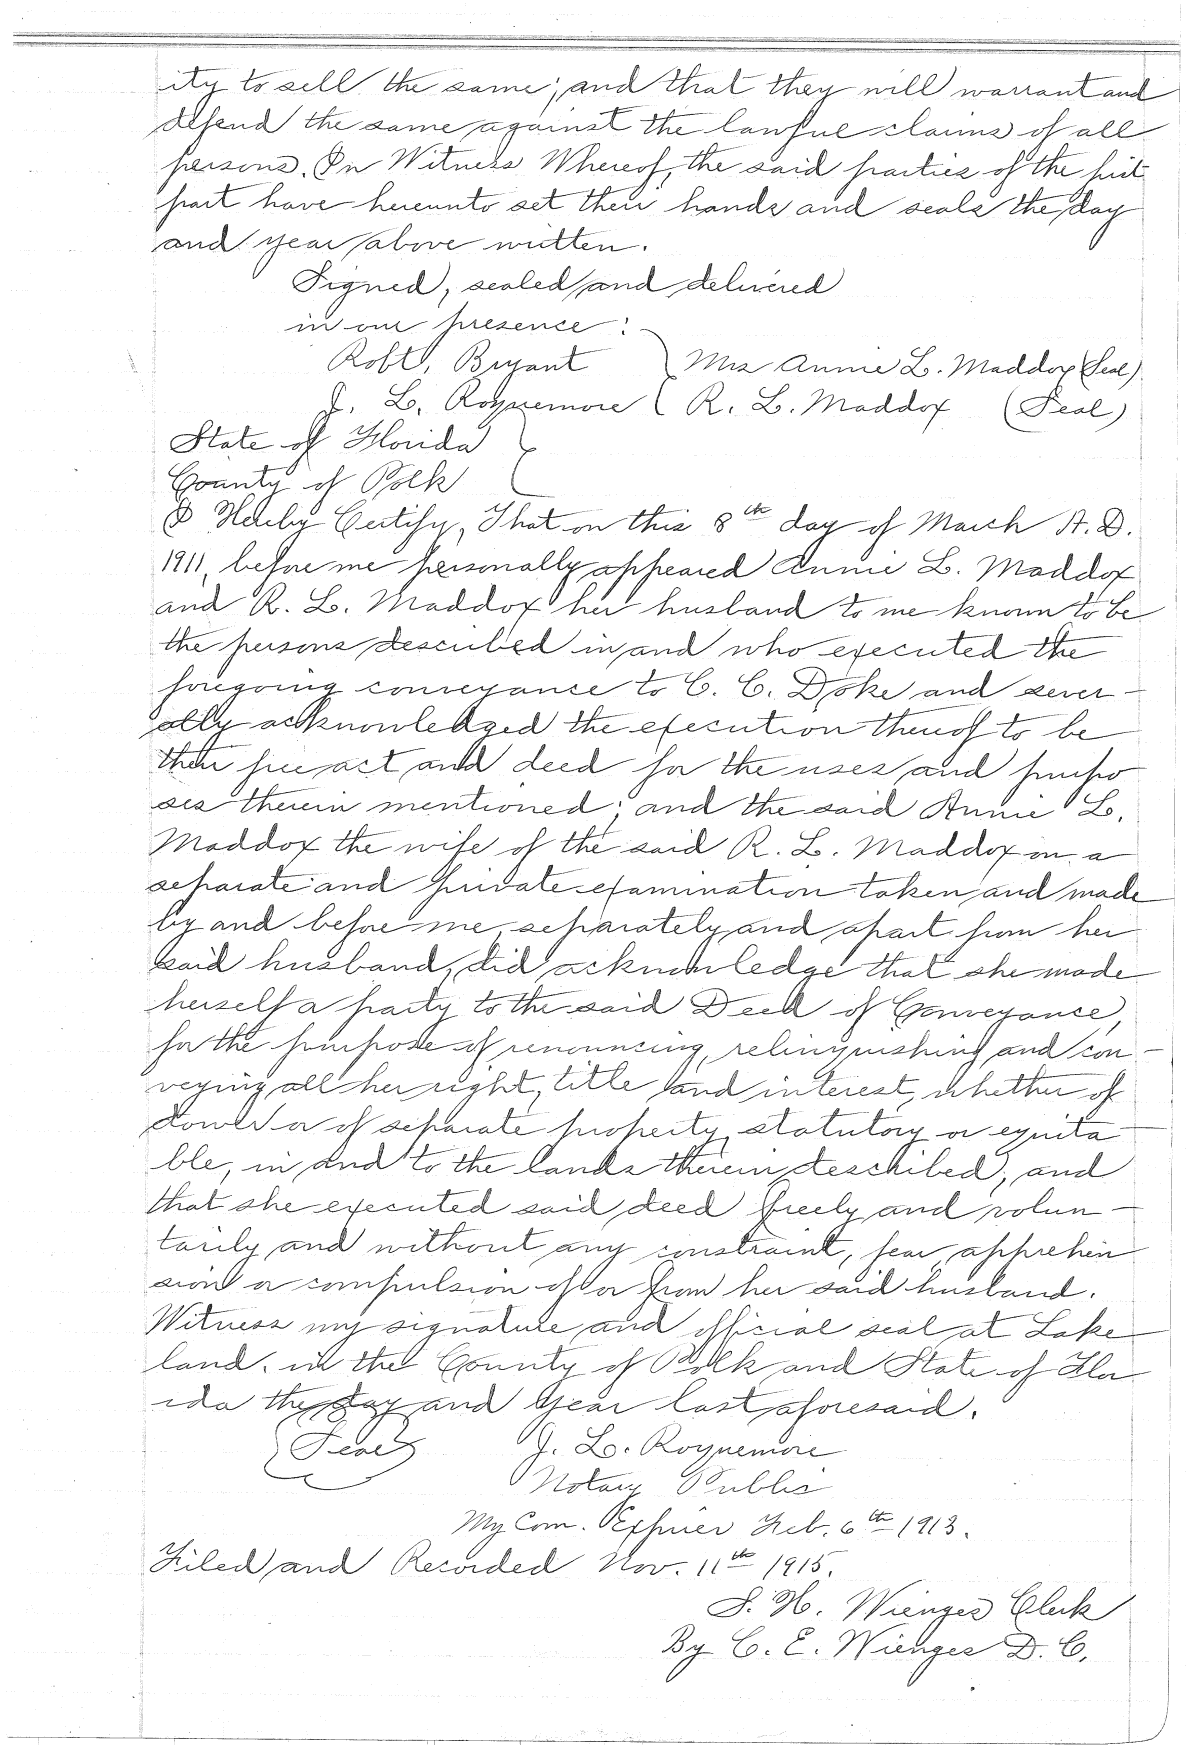 ity to sell the same; and that they will warrant and
defend the same against the lawful claims of all
persons. In Witness Whereof, the said parties of the first
part have hereunto set their hands and seals the day
and year above written.
Signed, sealed and delivered
in our presence:
Robt, Bryant Mrs Annie L. Maddox (Seal)
J. L. Roquemore R. L. Maddox (Seal)
State of Florida
County of Polk
I Hereby Certify, That on this 8th day of March A.D.
1911, before me personally appeared Annie L. Maddox
and R. L. Maddox her husband to me known to be
the persons described in and who executed the
foregoing conveyance to C. C. Doke and sever-
ally acknowledged the execution thereof to be
their free act and deed for the uses and purpo
ses therein mentioned; and the said Annie L.
Maddox the wife of the said R. L. Maddox on a
separate and private examination taken and made
by and before me, separately and apart from her
said husband, did acknowledge that she made
herself a party to the said Deed of Conveyance,
for the purpose of renouncing, relinquishing and con-
veying all her right, title and interest, whether of
dower or of separate property, statutory or equita
ble, in and to the lands therein described, and
that she executed said deed freely and volun-
tarily and without any constraint, fear, apprehen
sion or compulsion of or from her said husband.
Witness my signature and official seal at Lake
land. in the County of Polk and State of Flor
ida the day and year last aforesaid.
(Seal) J. L. Roquemore
Notary Public
My Com. Expires Feb. 6th 1913.
Filed and Recorded Nov. 11th 1915.
S. H. Wienges Clerk
By C. E. Wienges D. C.